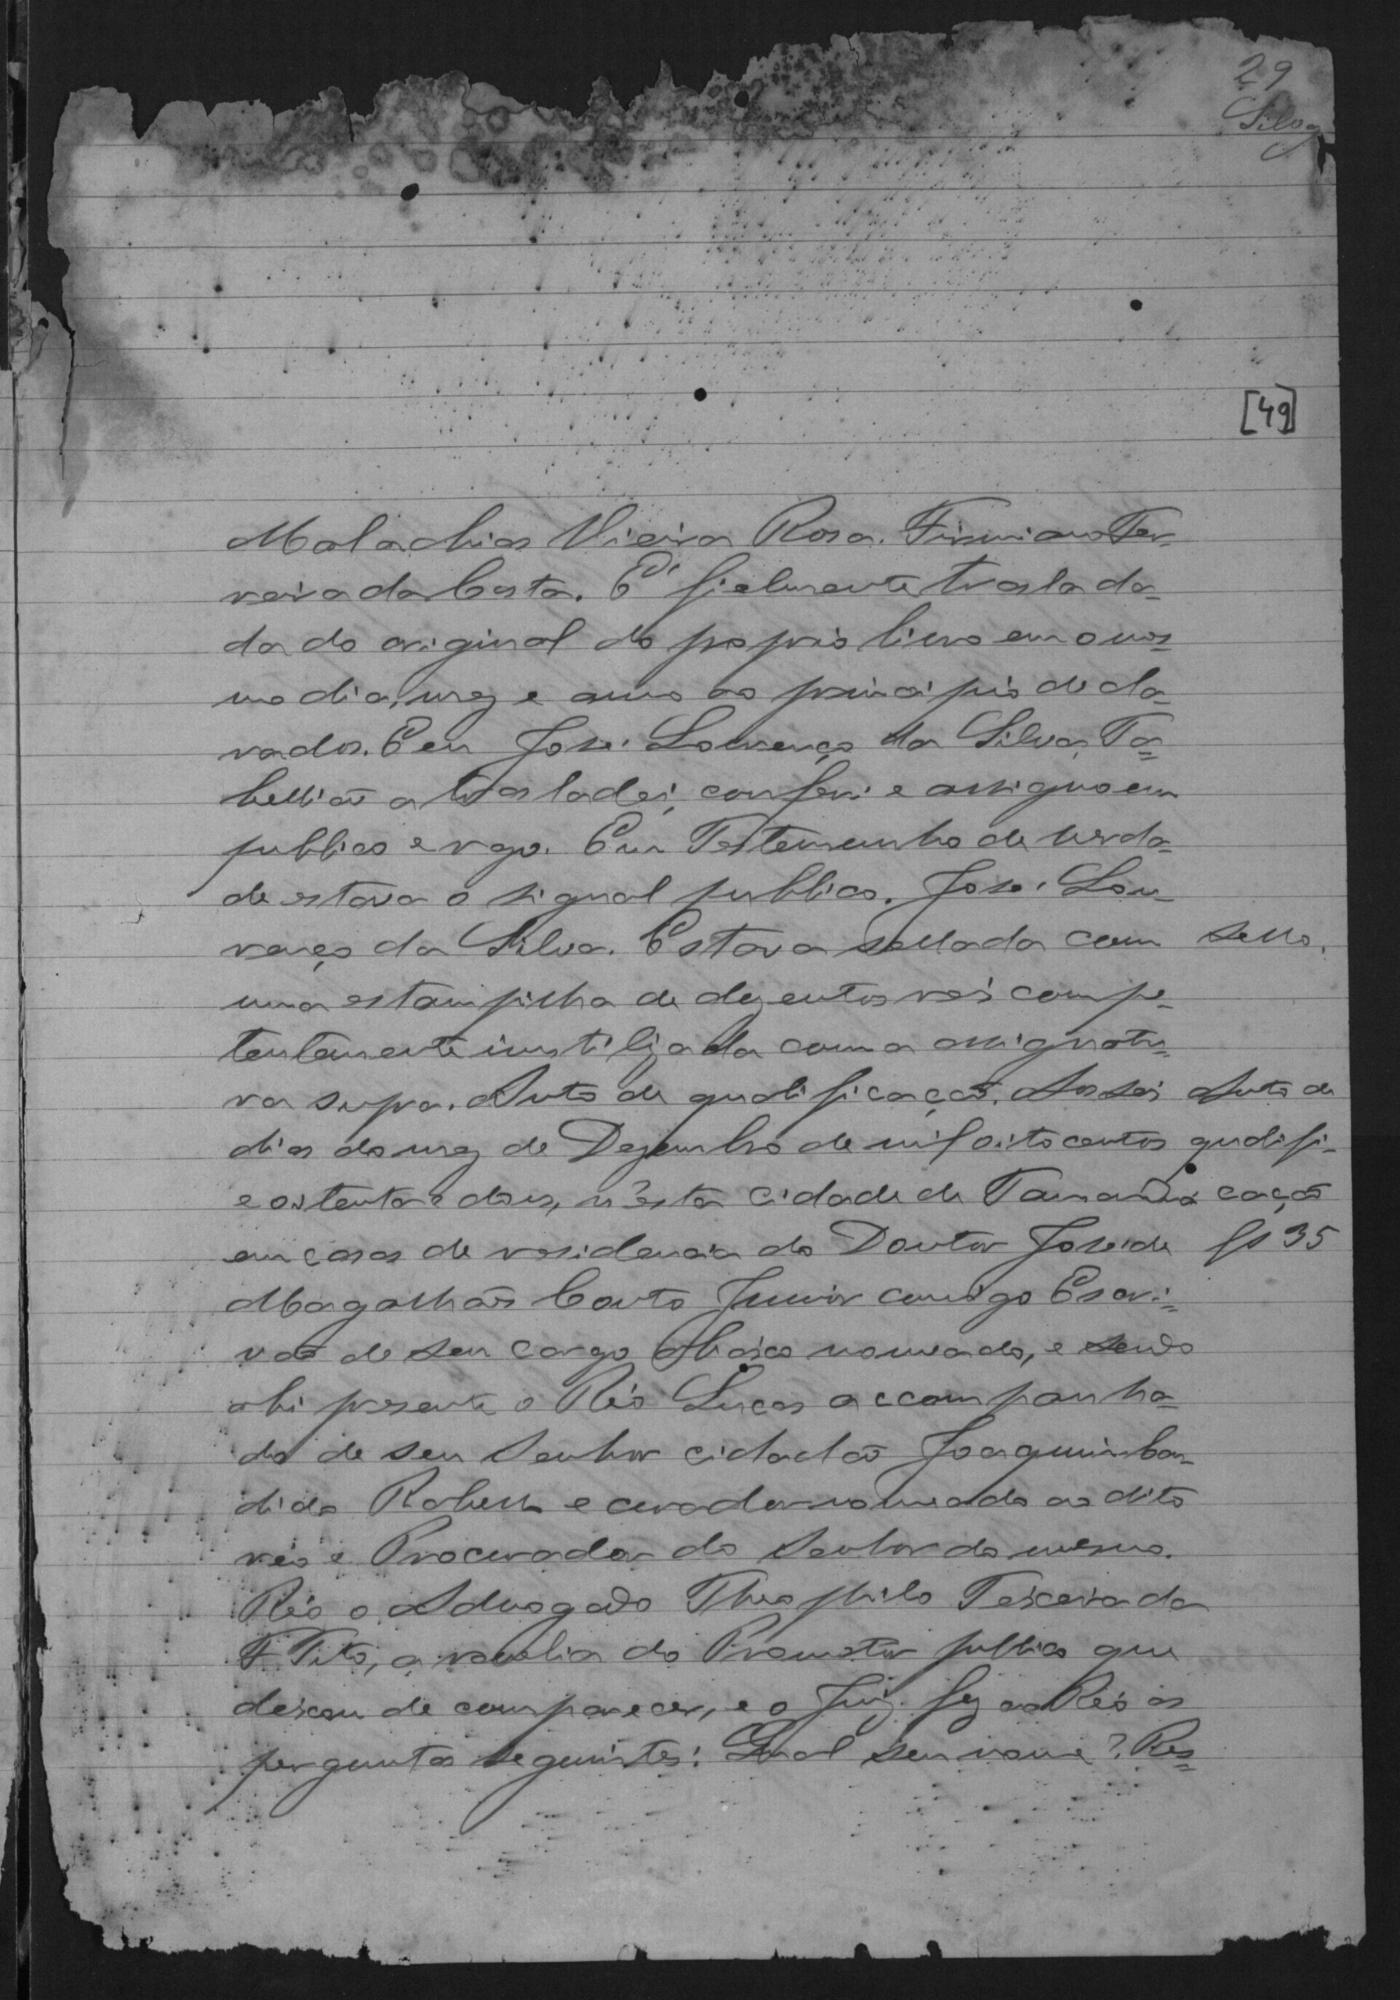 29
Silva
[49]
Malachias Vieira Rosa. Firmiano Fer-
reira da Costa. É fielmente traslada-
da do original do proprio livro em o mes-
mo dia, mez e anno ao principio decla-
rados. E eu José Lourenço da Silva, Ta-
bellião a trasladei, conferi e assigno em
publico e razo. Em Testemunho de verda-
de estava o signal publico. José Lou-
renço da Silva. Estava sellada com
Sello.
uma estampilha de dozentos reis compe-
tentemente inutilizada com a assignatu-
ra supra. Auto de qualificação. Aos seis
dias do mez de Dezembro de mil oitocentos
e oitenta e dous, n'esta cidade de
Auto de
qualifi-
cação
fs 35
em casas de residencia do Doutor José de
Magalhães Couto Junior comigo Escri-
vão de seu cargo abaixo nomeado, e sendo
ahi presente o Réo Lucas accompanha-
do de seu Senhor cidadão Joaquim Can-
dido e curador nomeado ao dito
réo e Procurador do Senhor do mesmo.
Réo o Advogado Theophilo Teixeira da
F. Tito, a revelia do Promotor publico que
deixou de comparecer, e o Juiz fez ao Réo as
perguntas seguintes: Qual seu nome? Res-